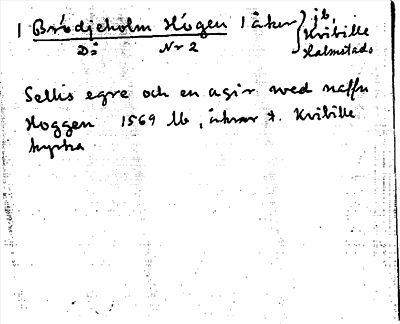 1 Brödjeholm Högen 1 åker } jb,
Kvibille
D:o Nr 2 Halmstads
Sellis egre och en agir med naffn
Hoggen 1569 lb, åkrar t. Kvibille
kyrka